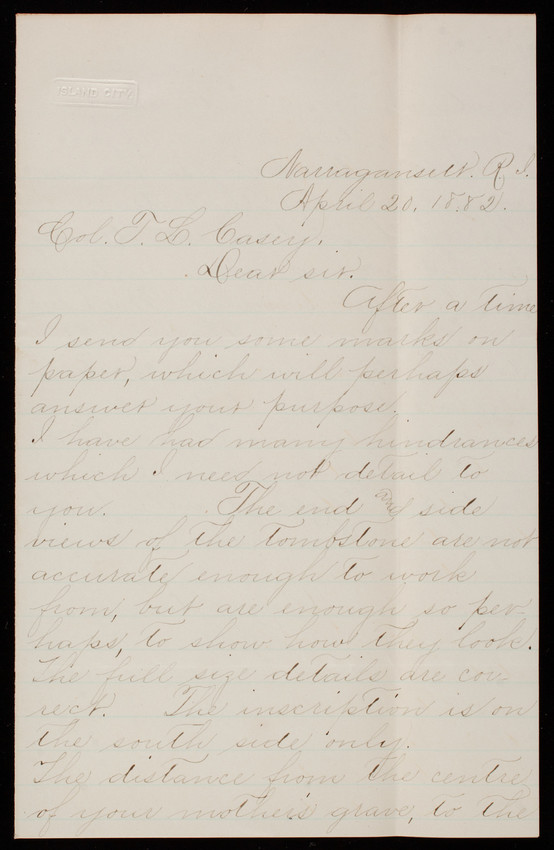 ISLAND CITY
Narragansett. R. I.
April 20. 1882.
Col. T. L. Casey.
Dear sir.
After a time
I send you some marks on
paper, which will perhaps
answer your purpose.
I have had many hindrances
which I need not detail to
you. The end and side
views of the tombstone are not
accurate enough to work
from, but are enough so per-
haps, to show how they look.
The full size details are cor-
rect. The inscription is on
the south side only.
The distance from the centre
of your mother's grave, to the